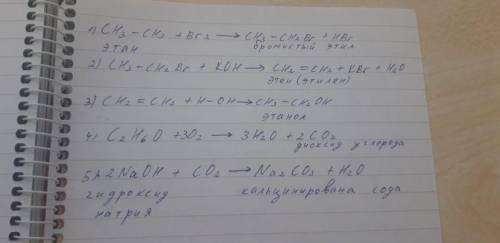 1) CH3 – CH3 + Br2 → CH3 – CH2Br + HBr
этан бромистый этил
2) CH3 – CH2Br + KOH → CH2 = CH2 + KBr + H2O
этен (этилен)
3) CH2 = CH2 + H – OH → CH3 – CH2OH
этанол
4) C2H6O + 3O2 → 3H2O + 2CO2
диоксид углерода
5) 2NaOH + CO2 → Na2CO3 + H2O
гидроксид кальцинирована сода
натрия